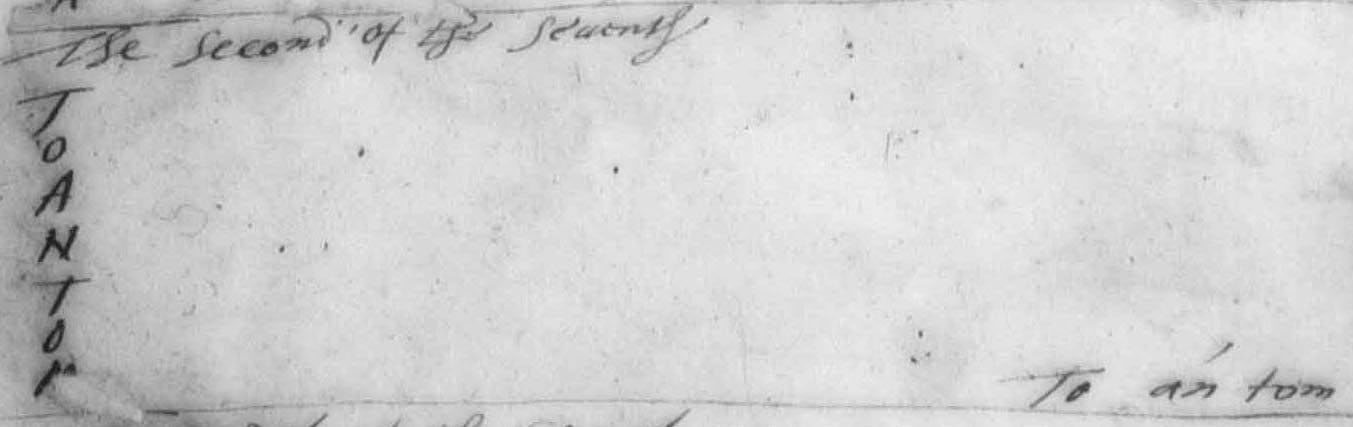 The second of the seuenth
T
O
A
N
T
O
To án tom